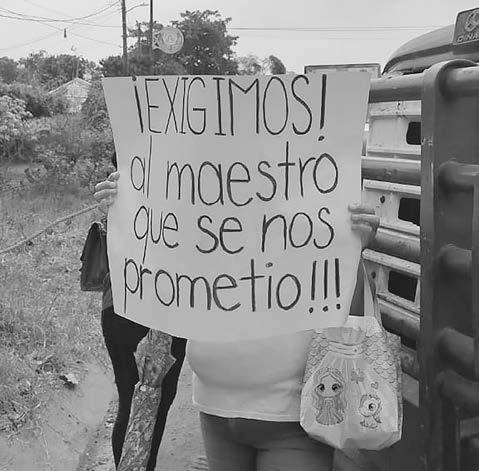 ¡EXIGIMOS!
al maestro
que se nos
prometio!!!
DINA